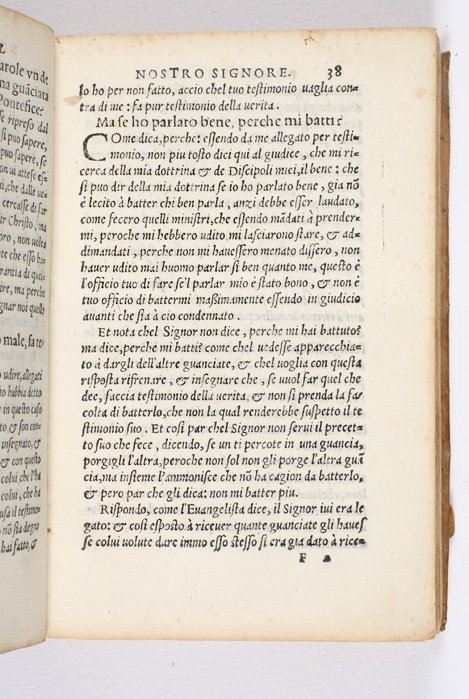 arole vn de
na guãciata
Pontefice:
e ripreso dal
si puo sapere,
puo sapere, se
cercasse di far
ir Christo, ma
trãre, ma perche
gnar noi quello
o male, fa te/
udire, allegati
io habbia detto
in questo caso
to, & son con-
insegnato, &
& con questo
colui che l'ha
colui, che ha
usa il testimo/
nõ sta degno
hai fatto, &
NOSTRO SIGNORE. 38
lo ho per non fatto, accio chel tuo testimonio uaglia con-
tra di me: fa pur testimonio della verita.
Ma se ho parlato bene, perche mi batti?
COme dica, perche: essendo da me allegato per testi-
monio, non piu tosto dici qui al giudice, che mi ri-
cerca della mia dottrina & de Discipoli miei, il bene: che
si può dir della mia dottrina se io ho parlato bene, gia nõ
è lecito à batter chi ben parla, anzi debbe esser laudato,
come fecero quelli ministri, che essendo mãdati à prender-
mi, perche mi hebbero udito, mi lasciarono stare, & ad-
dimandati, perche non mi hauessero menato dissero, non
hauer udito mai huomo parlar si ben quanto me, questo è
l'officio tuo di fare se'l parlar mio è stato bono, & non è
tuo officio di battermi massimamente essendo in giudicio
auanti che sia à cio condennato.
Et nota chel Signor non dice, perche mi hai battuto:
ma dice, perche mi batti: come chel uedesse apparecchia-
to à dargli dell'altre guanciate, & chel uoglia con questa
risposta rifrenare, & insegnare che, se uuol far quel che
dee, faccia testimonio della verita, & non si prenda la fa-
colta di batterlo, che non la qual renderebbe suspetto il te
stimonio suo. Et cosi par chel Signor non serui il precet-
to suo che fece, dicendo, se un ti percote in una guancia,
porgigli l'altra, peroche non sol non gli porge l'altra guã
cia, ma insieme l'ammonisce che nõ ha cagion da batterlo,
& pero par che gli dica: non mi batter piu.
Rispondo, come l'Euangelista dice, il Signor iui era le
gato: & cosi esposto à riceuer quante guanciate gli haues
se colui volute dare immo esso stesso si era gia dato à rice-
F